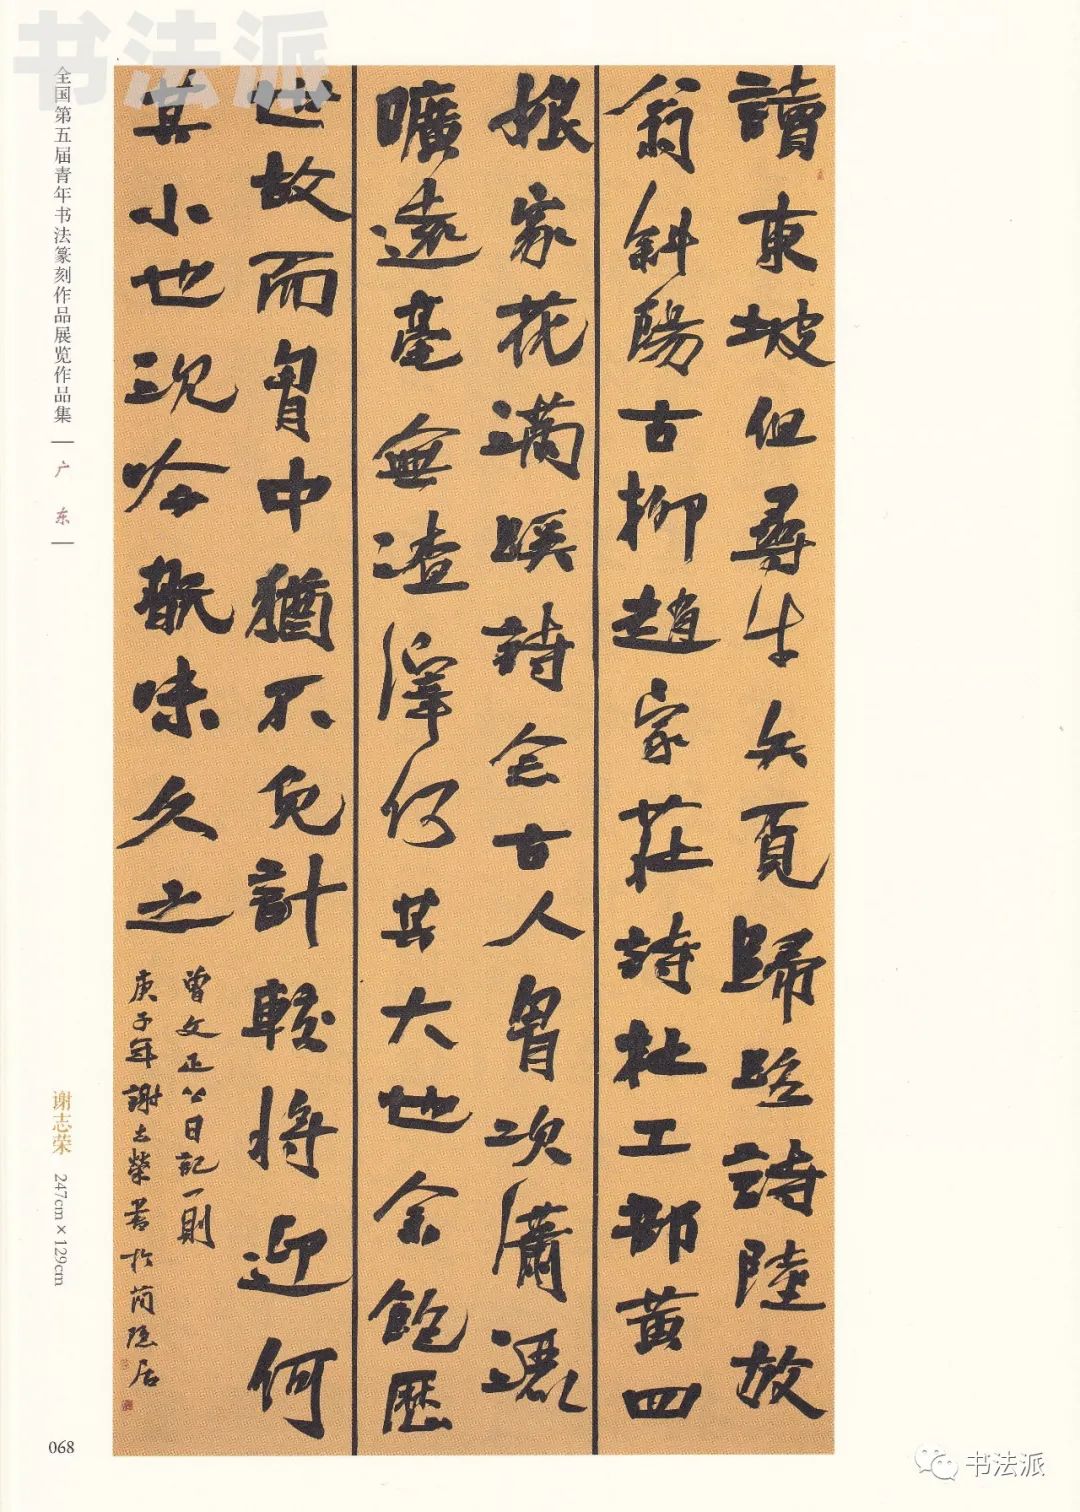 书法派
全国第五届青年书法篆刻作品展览作品集
广东
谢志荣 247cm×129cm
068
讀東坡但尋牛矢覓歸路詩陸放
翁斜陽古柳趙家莊詩杜工部黃四
娘家花滿蹊詩念古人胷次瀟灑
曠遠毫無渣滓何其大也余飽歷
世故而胷中猶不免計較將迎何
其小也沉吟翫味久之
曾文正公日記一則
庚子年謝志榮書於隱居
书法派